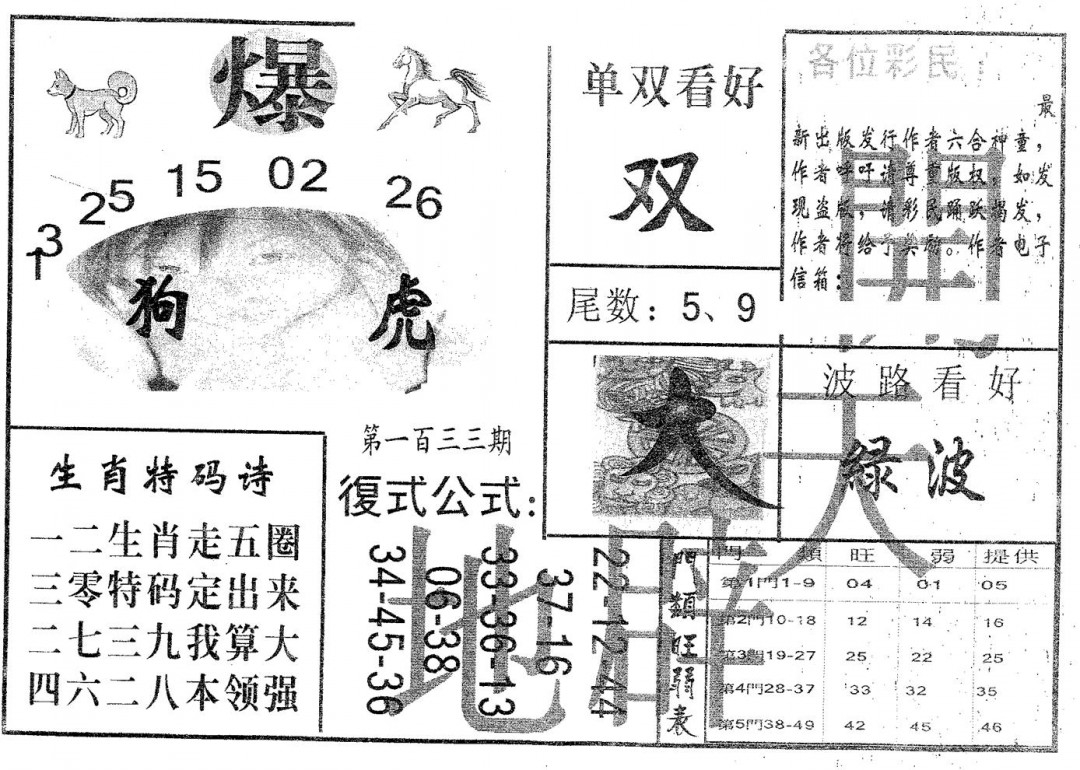 爆
13
25
15
02
26
狗
虎
第一百三三期
生肖特码诗
一二生肖走五圈
三零特码定出来
二七三九我算大
四六二八本领强
復式公式:
34-45-36
06-38
33-36-13
37-16
22-12-44
单双看好
双
尾数：5、9
大
各位彩民：
最
新出版发行作者六合神童，
作者呼吁请尊重版权，如发
现盗版，请彩民踊跃揭发，
作者将给予奖励。作者电子
信箱：
波路看好
緑波
門類旺弱表
門 類 旺 弱 提供
第1門1-9 04 01 05
第2門10-18 12 14 16
第3門19-27 25 22 25
第4門28-37 33 32 35
第5門38-49 42 45 46
開
天
地